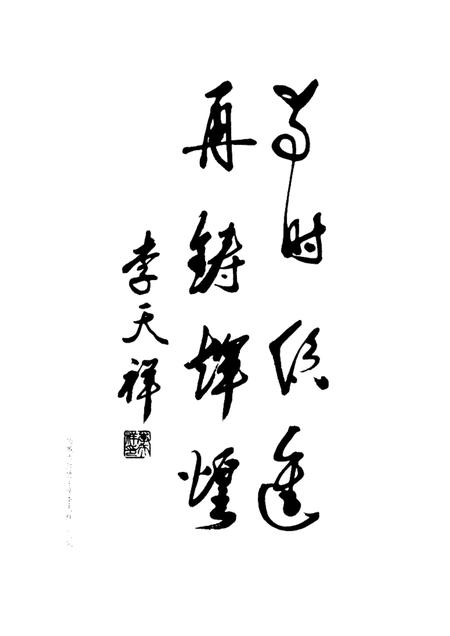 与时俱进
再铸辉煌
李天祥